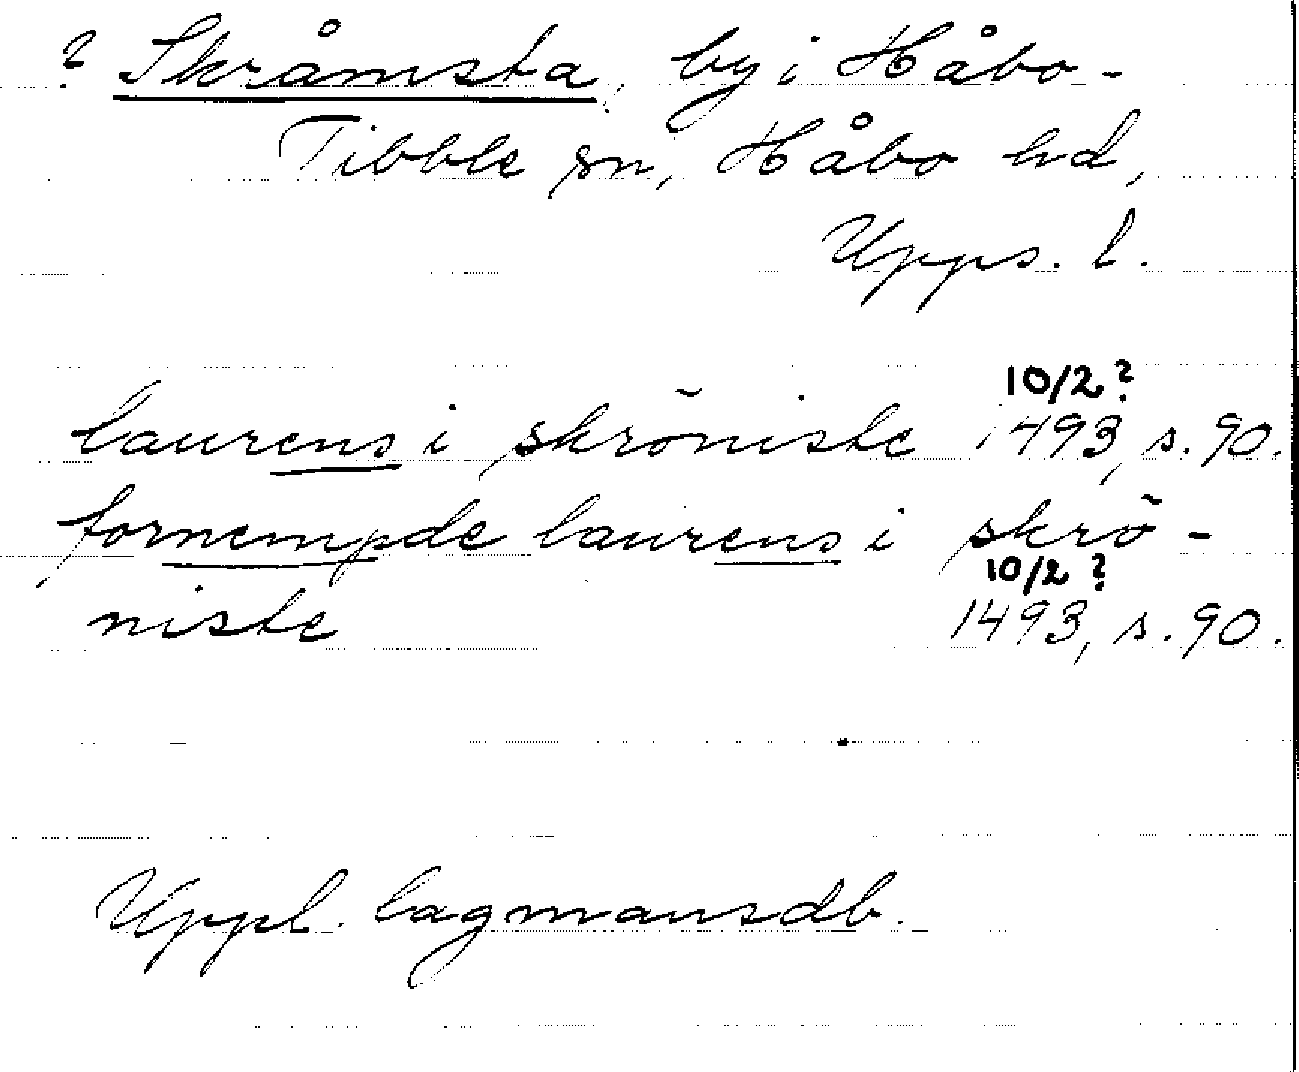 ? Skråmsta, by i Håbo-
Tibble sn, Håbo hd,
Upps. l.
10/2?
laurens i skrõniste 1493, s. 90.
fornempde laurens i skrõ-
10/2 ?
niste 1493, s. 90.
Uppl. lagmansdb.